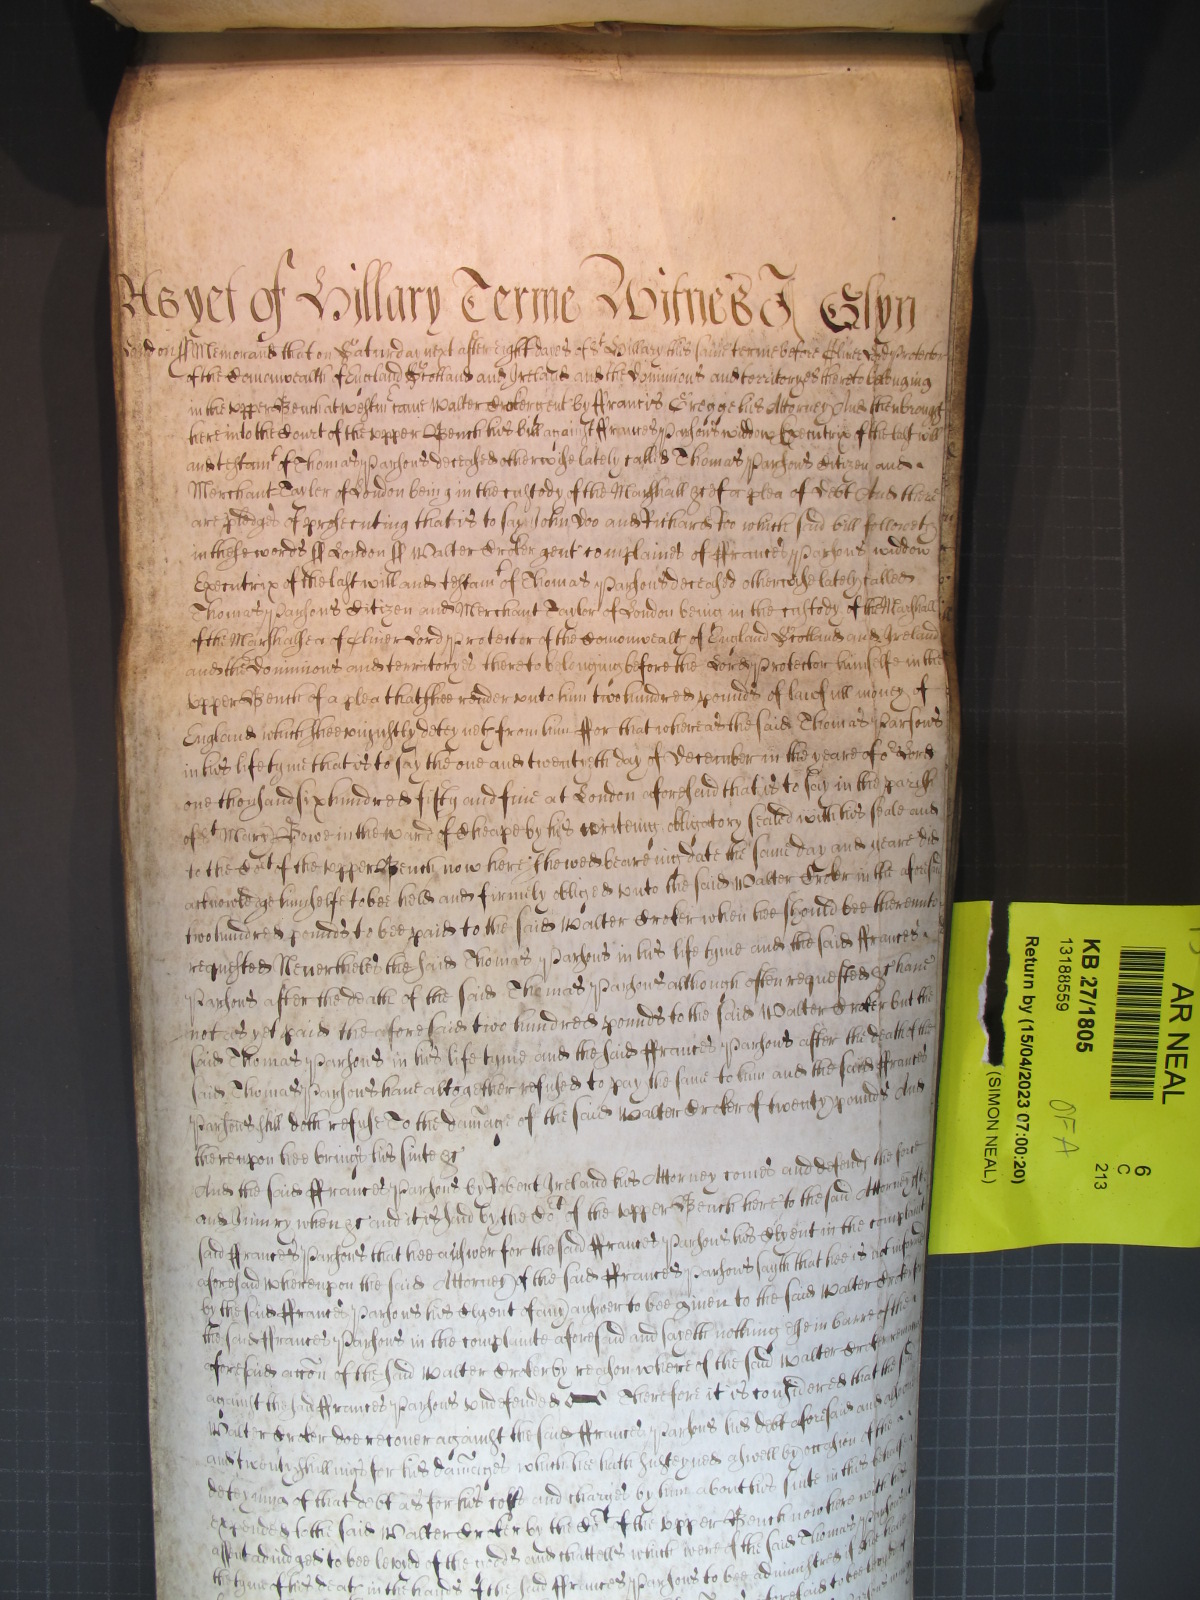 As yet of Hillary Terme Witnes J Glyn
London ss Memorand that on Saturday next after eight dayes of St Hillary this same terme before Oliver Lord Protector
of the Comonwealth of England Scotland and Ireland and the Dominions and territoryes thereto belonging
in the upper Bench at Westm came Walter Croker gent by ffrancis Gregge his Attorney And then brought
here into the Court of the upper Bench his bill against ffrances Parsons widdow Executrix of the last will
and testamt of Thomas Parsons deceased otherwise lately called Thomas Parsons Citizen and
Merchant Taylor of London being in the custody of the Marshall &c of a plea of Debt And there
are pledges of prosecuting that is to say John Doo and Richard Roo which said bill followeth
in these words ss London ss Walter Croker gent complaines of ffrances Parsons widdow
Executrix of the last will and testamt of Thomas Parsons deceased otherwise lately called
Thomas Parsons Citizen and Merchant Taylor of London being in the custody of the Marshall
of the Marshalsea of Oliver Lord Protector of the Comonwealth of England Scotland and Ireland
and the Dominions and territoryes thereto belonging before the Lord Protector himselfe in the
upper Bench of a plea that shee render unto him two hundred pounds of lawfull money of
England which shee uniustly deteyneth from him ffor that whereas the said Thomas Parsons
in his life tyme that is to say the one and twentieth day of December in the yeare of or Lord
one thousand six hundred fifty and five at London aforesaid that is to say in the parish
of St Mary Bowe in the ward of Cheape by his writeing obligatory sealed with his seale and
to the Cort of the upper Bench now here shewed beareing date the same day and yeare did
acknowledge himselfe to bee held and firmely obliged unto the said Walter Croker in the aforesaid
two hundred pounds to bee paid to the said Walter Croker when hee should bee thereunto
requested Nevertheles the said Thomas Parsons in his life tyme and the said ffrances
Parsons after the death of the said Thomas Parsons although often requested &c have
not as yet paid the aforesaid two hundred pounds to the said Walter Croker but the
said Thomas Parsons in his life tyme and the said ffrances Parsons after the death of the
said Thomas Parsons have altogether refused to pay the same to him and the said ffrances
Parsons still doth refuse To the damage of the said Walter Croker of twenty pounds And
thereupon hee brings his suite &c
And the said ffrances Parsons by Robert Ireland his Attorney comes and defends the force
and Iniury when &c and it is said by the Cort of the upper Bench here to the said Attorney of the
said ffrances Parsons that hee answer for the said ffrances Parsons his Clyent in the complaint
aforesaid whereupon the said Attorney of the said ffrances Parsons sayth that hee is not informed
by the said ffrances Parsons his Clyent of any answer to bee given to the said Walter Croker for
the said ffrances Parsons in the complainte aforesaid and sayeth nothing else in barre of the
aforesaid accon of the said Walter Croker by reason whereof the said Walter Croker
against the said ffrances Parsons undefended Therefore it is considered that the said
Walter Croker doe recover against the said ffrances Parsons his debt aforesaid and
and twenty shillings for his damages which hee hath susteyned aswell by occasion of the
deteyning of that debt as for his costs and charges by him about his suite in this behalfe
expended to the said Walter Croker by the Cort of the upper Bench now here with his
assent adiudged to bee levied of the goods and chattells which were of the said Thomas Parsons
the tyme of his death in the hands of the said ffrances Parsons to bee administred if
AR NEAL
KB 27/1805
13188559
Return by (15/04/2023 07:00:20)
(SIMON NEAL)
OFA
6
C
213